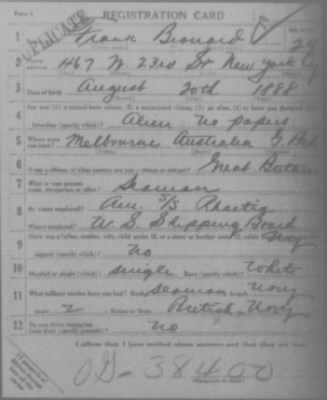 Form 1 REGISTRATION CARD
DUPLICATE
1 Frank
2 467 W. 23rd St New York
3 Date of birth August 20th 1888
4 Are you (1) a natural-born citizen, (2) a naturalized citizen, (3) an alien, (4) or have you declared your
intention (specify which)? Alien no papers
5 Where were you born? Melbourne Australia G. Brit
6 If not a citizen, of what country are you a citizen or subject? Great Britain
7 What is your present trade, occupation, or office? Seaman
8 By whom employed? Am. S/S
Where employed? U. S. Shipping Board
9 Have you a father, mother, wife, child under 12, or a sister or brother under 12, solely
support (specify which)? No
10 Married or single (which)? single Race (specify which)? White
11 What military service have you had? Rank seaman branch Navy
years 2 Nation or State British Navy
12 Do you claim exemption from draft (specify grounds)? No
I affirm that I have verified above answers and that they are true.
38400